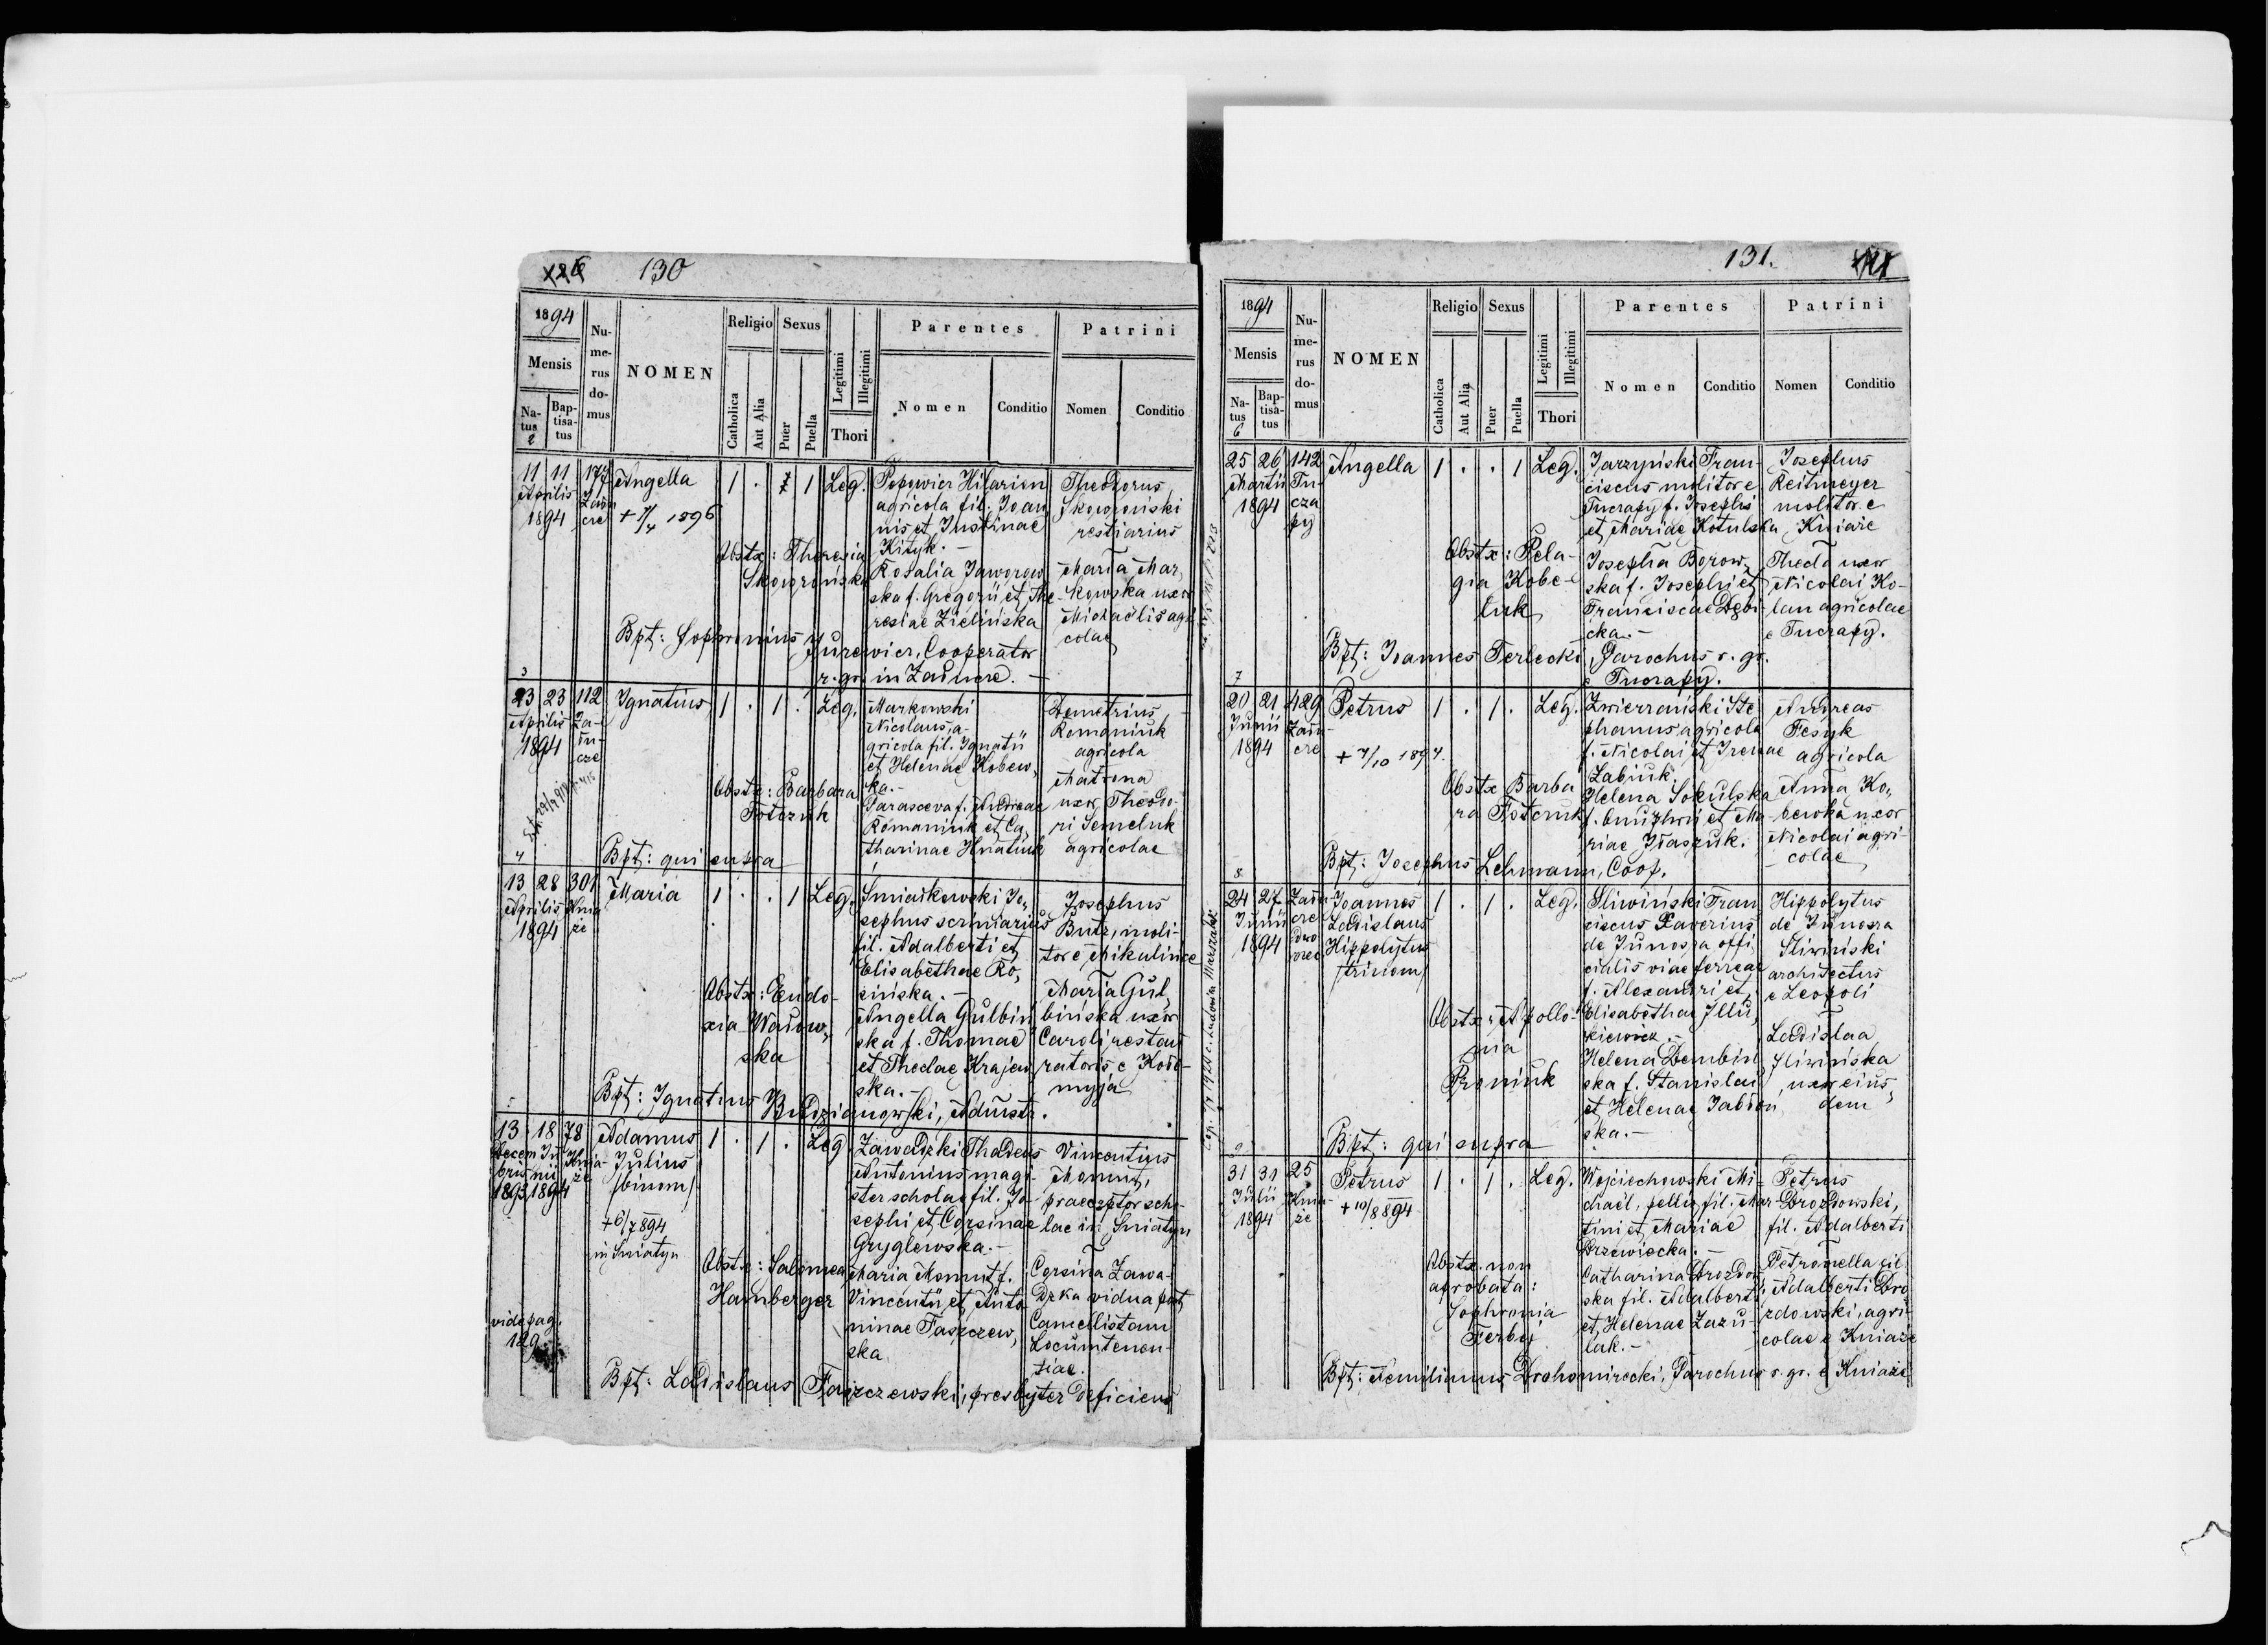 126 130
1894
Mensis
Na-
tus
Bap-
tisa-
tus
Nu-
me-
rus
do-
mus
NOMEN
Religio
Catholica
Aut Alia
Sexus
Puer
Puella
Legitimi
Illegitimi
Thori
Parentes
Nomen
Conditio
Patrini
Nomen
Conditio
2
11 11 177
Aprilis
1894
Zału
cze
Angella
+ 7/4 1896
1 . 1 Leg.
Popowicz Hilarion
agricola fil. Joan
nis et Justinae
Kityk. –
Rosalia Jaworow
ska f. Gregorii et The-
resiae Zielińska
Theodorus
Skoworoński
restiarius
Maria Mar,
kowska uxor
Michaëlis agri
colae
Obstx: Theresia
Skoworońska
Bpt: Sophronius Jurewicz, Cooperator
r. gr. in Załucze. –
3
23 23 112
Aprilis
1894
Za-
łu-
cze
Ignatius
1 . 1 . Leg.
Markowski
Nicolaus, a-
gricola fil. Ignatii
et Helenae Kobew,
ka. –
Parasceva f. Andreae
Romaniuk et Ca,
tharinae Hnatiuk
Demetrius
Romaniuk
agricola
Matrona
uxor Theodo-
ri Semeluk
agricolae
Obstx: Barbara
Fotczuk
Bpt: qui supra
4
13 28 301
Aprilis
1894
Knia
że
Maria
1 . . 1 Leg.
Smiałkowski Jo,
sephus scriniarius
fil. Adalberti et
Elisabethae Ro,
sińska. –
Angella Gulbiń
ska f. Thomae
et Theclae Krajew
ska. –
Josephus
Butz, moli-
tor e Mikulińce
Maria Gul,
bińska uxor
Caroli restau
ratoris e Koło-
myja
Obstx: Eudo-
xia Wadow,
ska
Bpt: Ignatius Budzianowski, Admstr.
5
13 18 78
Decem
bris
1893
Ju
nii
1894
Knia-
że
Adamus
Julius
/binom/
+ 6/7 894
in Śniatyn
1 . 1 . Leg
Zawadzki Thadeus
Antonius magi-
ster scholae fil. Jo-
sephi et Corsinae
Gryglewska. –
Maria Momut f.
Vincentii et Anto-
ninae Faszczew,
ska
Vincentius
Momut,
praeceptor scho-
lae in Śniatyn
Corsina Zawa-
dzka vidua post
Cancellistam
Locumtenen-
tiae.
Obstx: Salomea
Hamberger
vide pag.
129
Bpt: Ladislaus Faszczewski, presbyter deficiens
131.
1894
Mensis
Na-
tus
Bap-
tisa-
tus
Nu-
me-
rus
do-
mus
NOMEN
Religio
Catholica
Aut Alia
Sexus
Puer
Puella
Legitimi
Illegitimi
Thori
Parentes
Nomen
Conditio
Patrini
Nomen
Conditio
6
25 26 142
Martii
1894
Tu-
cza
py
Angella
1 . . 1 Leg.
Jarzyński Fran-
ciscus molitor e
Tuczapy f. Josephi
et Mariae Kotulska
Josepha Borow,
ska f. Josephi et
Franciscae Dębi-
cka. –
Josephus
Reitmeyer
molitor e
Kniaże
Thecla uxor
Nicolai Ko-
lan agricolae
e Tuczapy.
Obstx: Pela-
gia Kobe-
luk
Bpt: Joannes Terlecki, Parochus r. gr.
e Tuczapy.
7
20 21 429
Junii
1894
Zału
cze
Petrus
+ 7/10 1894.
1 . 1 . Leg.
Zwierzański Ste
phanus agricola
f. Nicolai et Irenae
Łabiuk.
Helena Sokulska
f. Onuphrii et Ma-
riae Iłaszuk.
Andreas
Fesyk
agricola
Anna Ko,
bewka uxor
Nicolai agri-
colae
Obstx Barba
ra Fotczuk
Bpt: Josephus Lehmann, Coop.
8
24 27
Junii
1894
Zału
cze
dwo
rzec
Joannes
Ladislaus
Hippolytus
/trinom/
1 . 1 . Leg.
Śliwiński Fran
ciscus Xaverius
de Junosza offi
cialis viae ferreae
f. Alexandri et
Elisabethae Illu,
kiewicz. –
Helena Dembiń
ska f. Stanislai
et Helenae Jabłoń,
ska. –
Hippolytus
de Junosza
Śliwiński
architectus
e Leopoli
Ladislaa
Śliwińska
uxor eius,
dem
Obstx: Apollo-
nia
Proniuk
Bpt: qui supra
9
31 31 25
Julii
1894
Knia-
że
Petrus
+ 10/8 894
1 . 1 . Leg.
Wojciechowski Mi-
chaël, pellio, fil. Mar
tini et Mariae
Brzewiecka. –
Catharina Drozdow
ska fil. Adalberti
et Helenae Zazu-
lak. –
Petrus
Drozdowski,
fil. Adalberti
Petronella fil.
Adalberti Dro
zdowski, agri-
colae e Kniaże
Obstx. non
aprobata:
Sophronia
Ferbej
Bpt: Aemilianus Drohomirecki, Parochus r. gr. e Kniaże